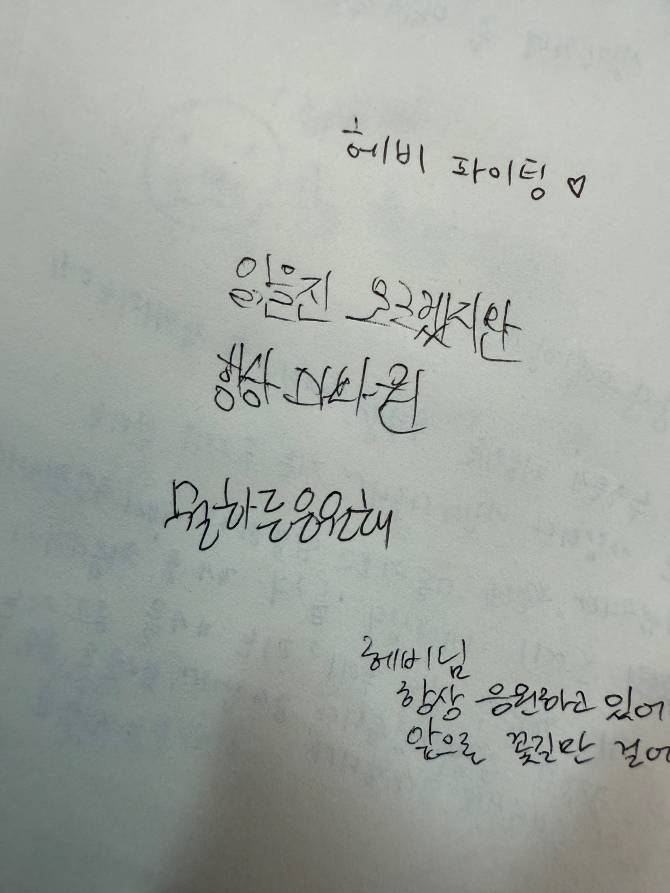 헤비 파이팅 ♡
읽을진 모르겠지만
항상
뭘하든응원해
헤비님
항상 응원하고 있어
앞으로 꽃길만 걸어